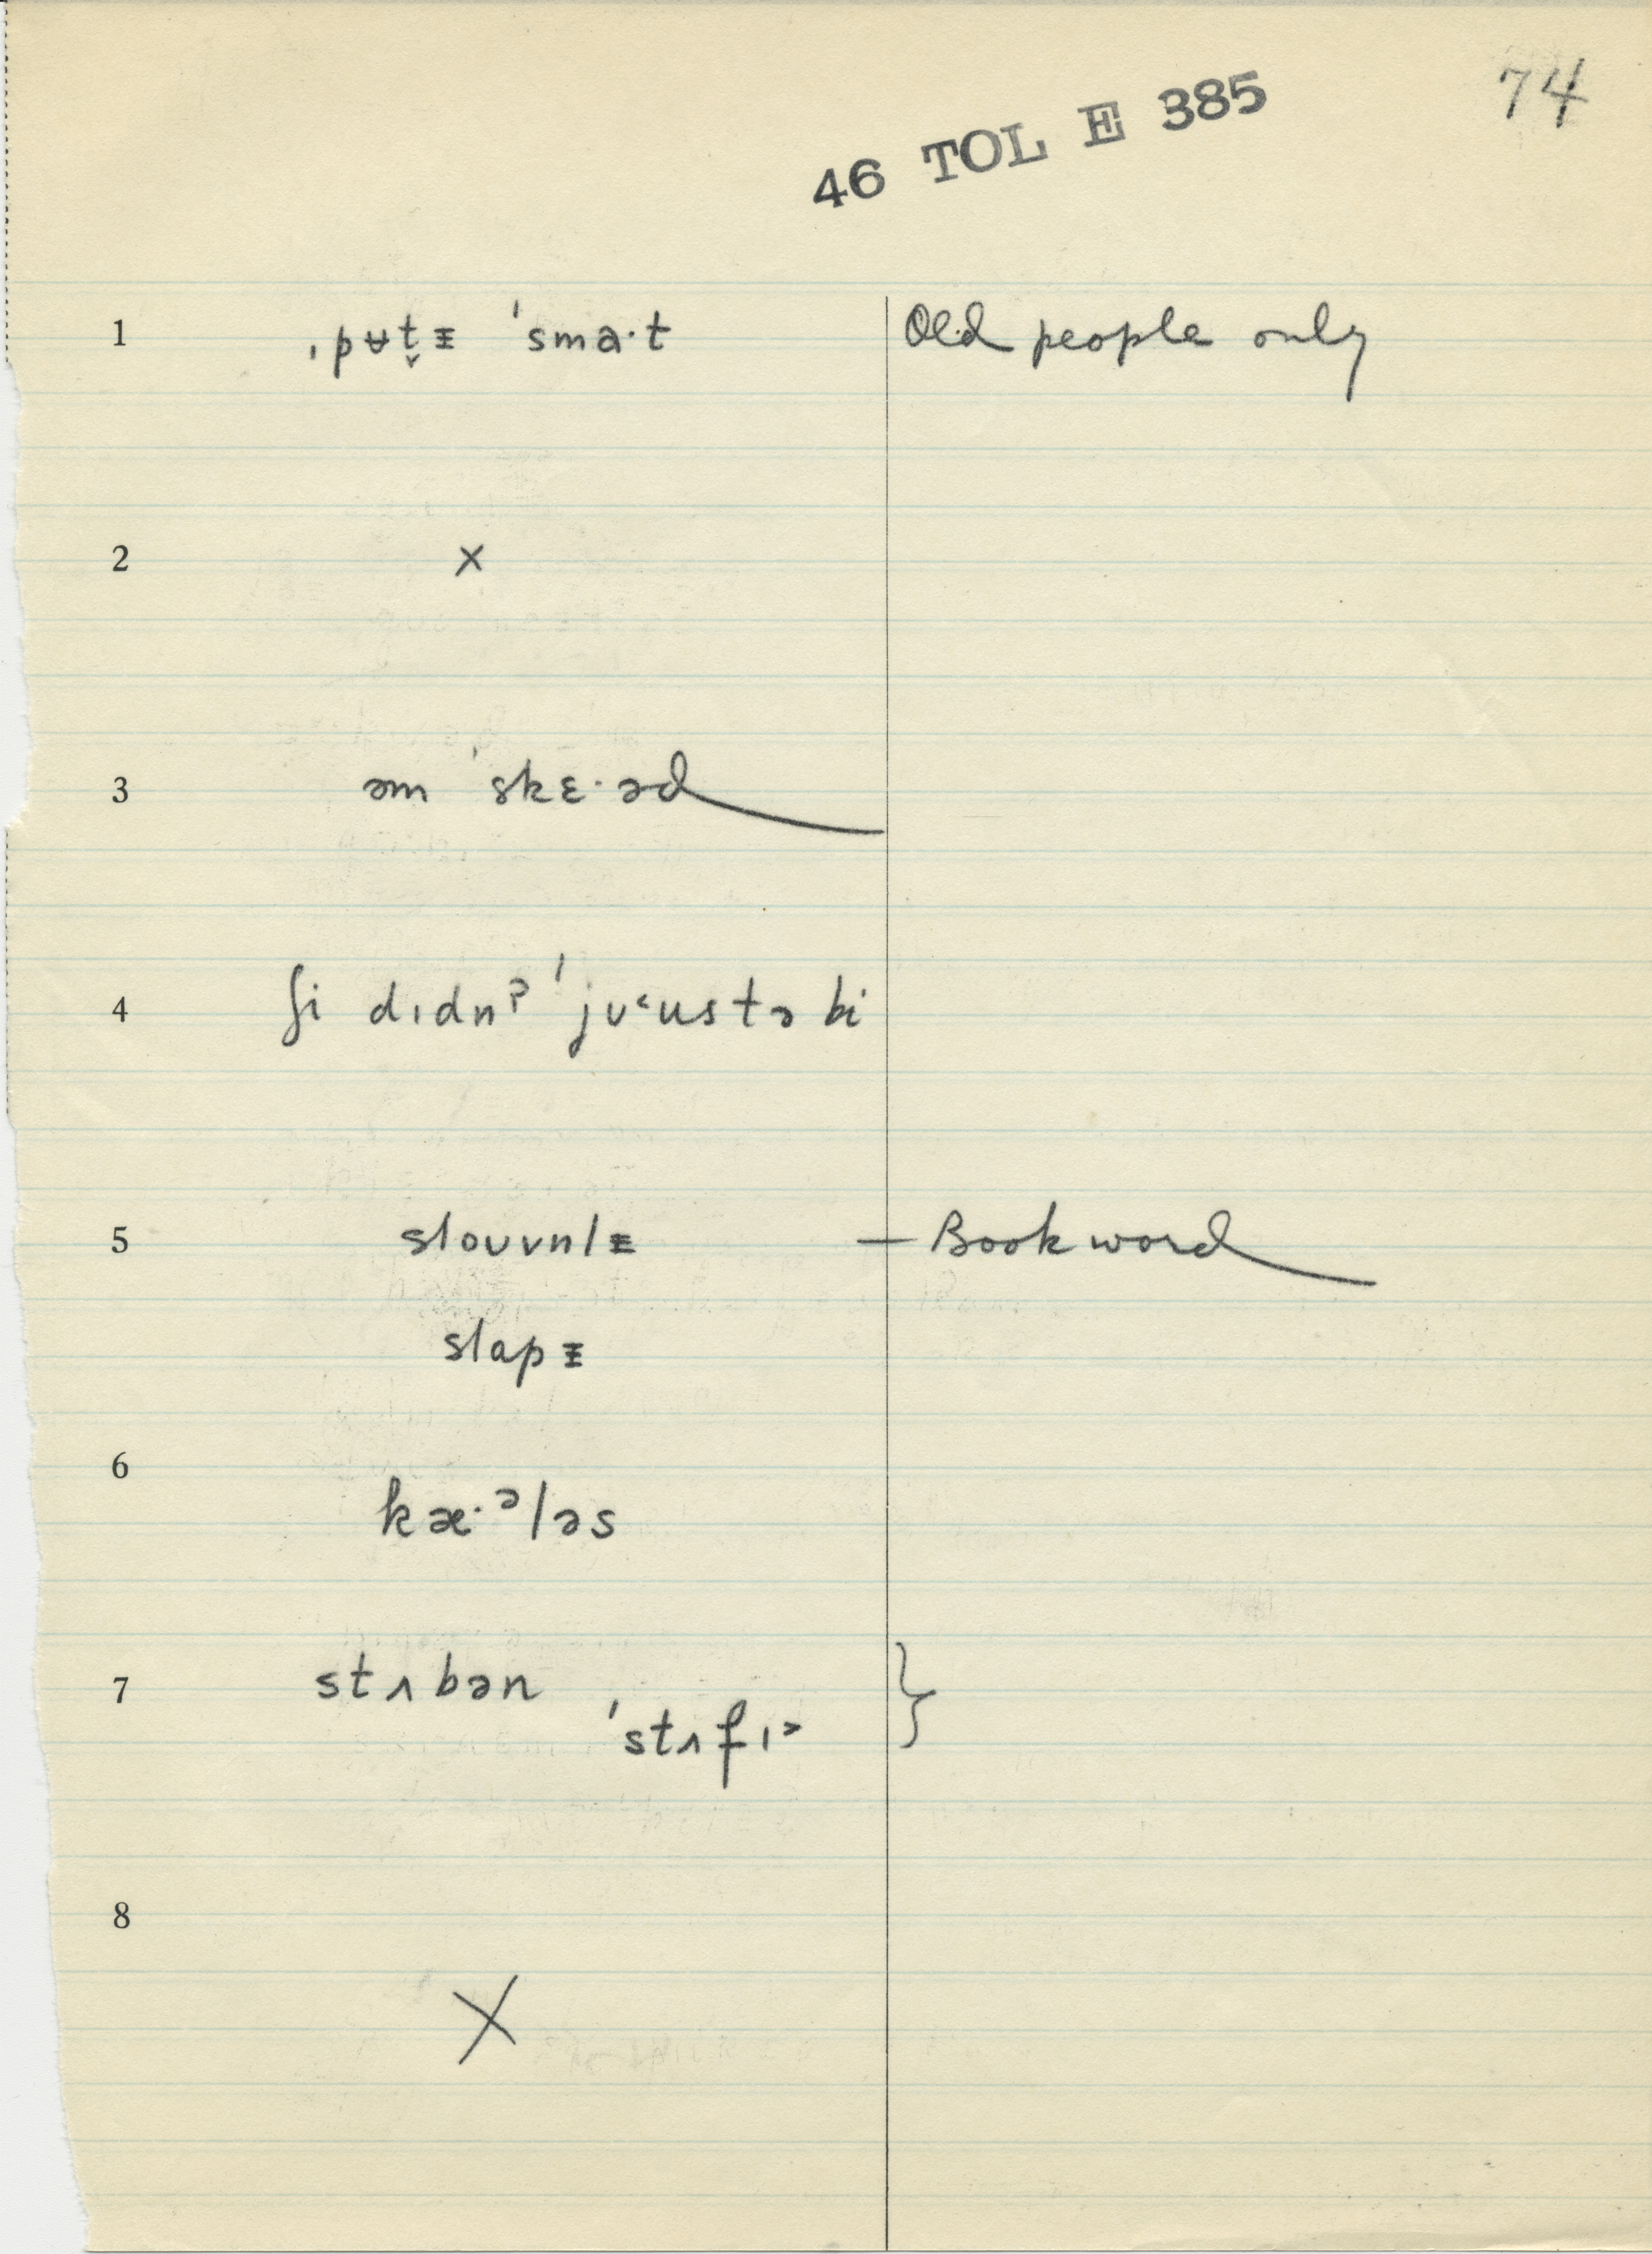 74
46 TOL E 385
1 ˌpʉt̬ᵻ ˈsma·t Old people only
2 ×
3 əm ˈskɛ·əd
4 ʃi dɪdnʔ ˈjʊ˂ustə bi
5 sloʊvnlᵻ — Bookword
slapᵻ
6 kæ·ᵊləs
7 stʌbən }
ˈstʌfɪ˃
8 ×